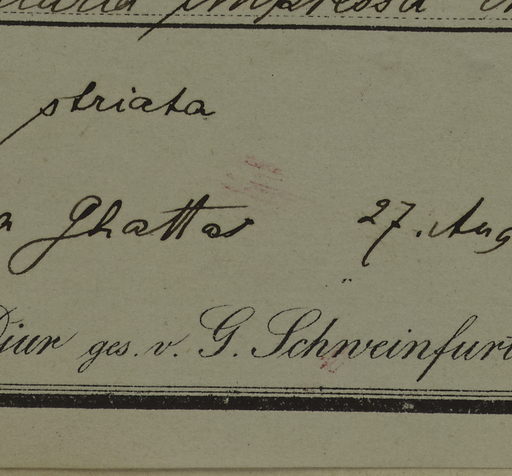 impressa
striata
Ghattas 27. Aug
Djur ges. v. G. Schweinfurt